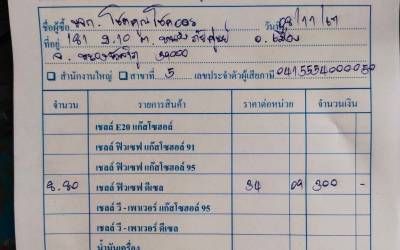 ชื่อผู้ซื้อ หจก. โชคคูณโชค วันที่ 08/11/67
ที่อยู่ 181 ม.10 ต. อ. เมือง
จ. หนองบัวลำภู 39000
☐ สำนักงานใหญ่ ☐ สาขาที่ 5 เลขประจำตัวผู้เสียภาษี
จำนวน รายการสินค้า ราคาต่อหน่วย จำนวนเงิน
เชลล์ E20 แก๊สโซฮอล์
เชลล์ ฟิวเซฟ แก๊สโซฮอล์ 91
เชลล์ ฟิวเซฟ แก๊สโซฮอล์ 95
8.80 เชลล์ ฟิวเซฟ ดีเซล 34 09 300 -
เชลล์ วี - เพาเวอร์ แก๊สโซฮอล์ 95
เชลล์ วี - เพาเวอร์ ดีเซล
น้ำมันเครื่อง